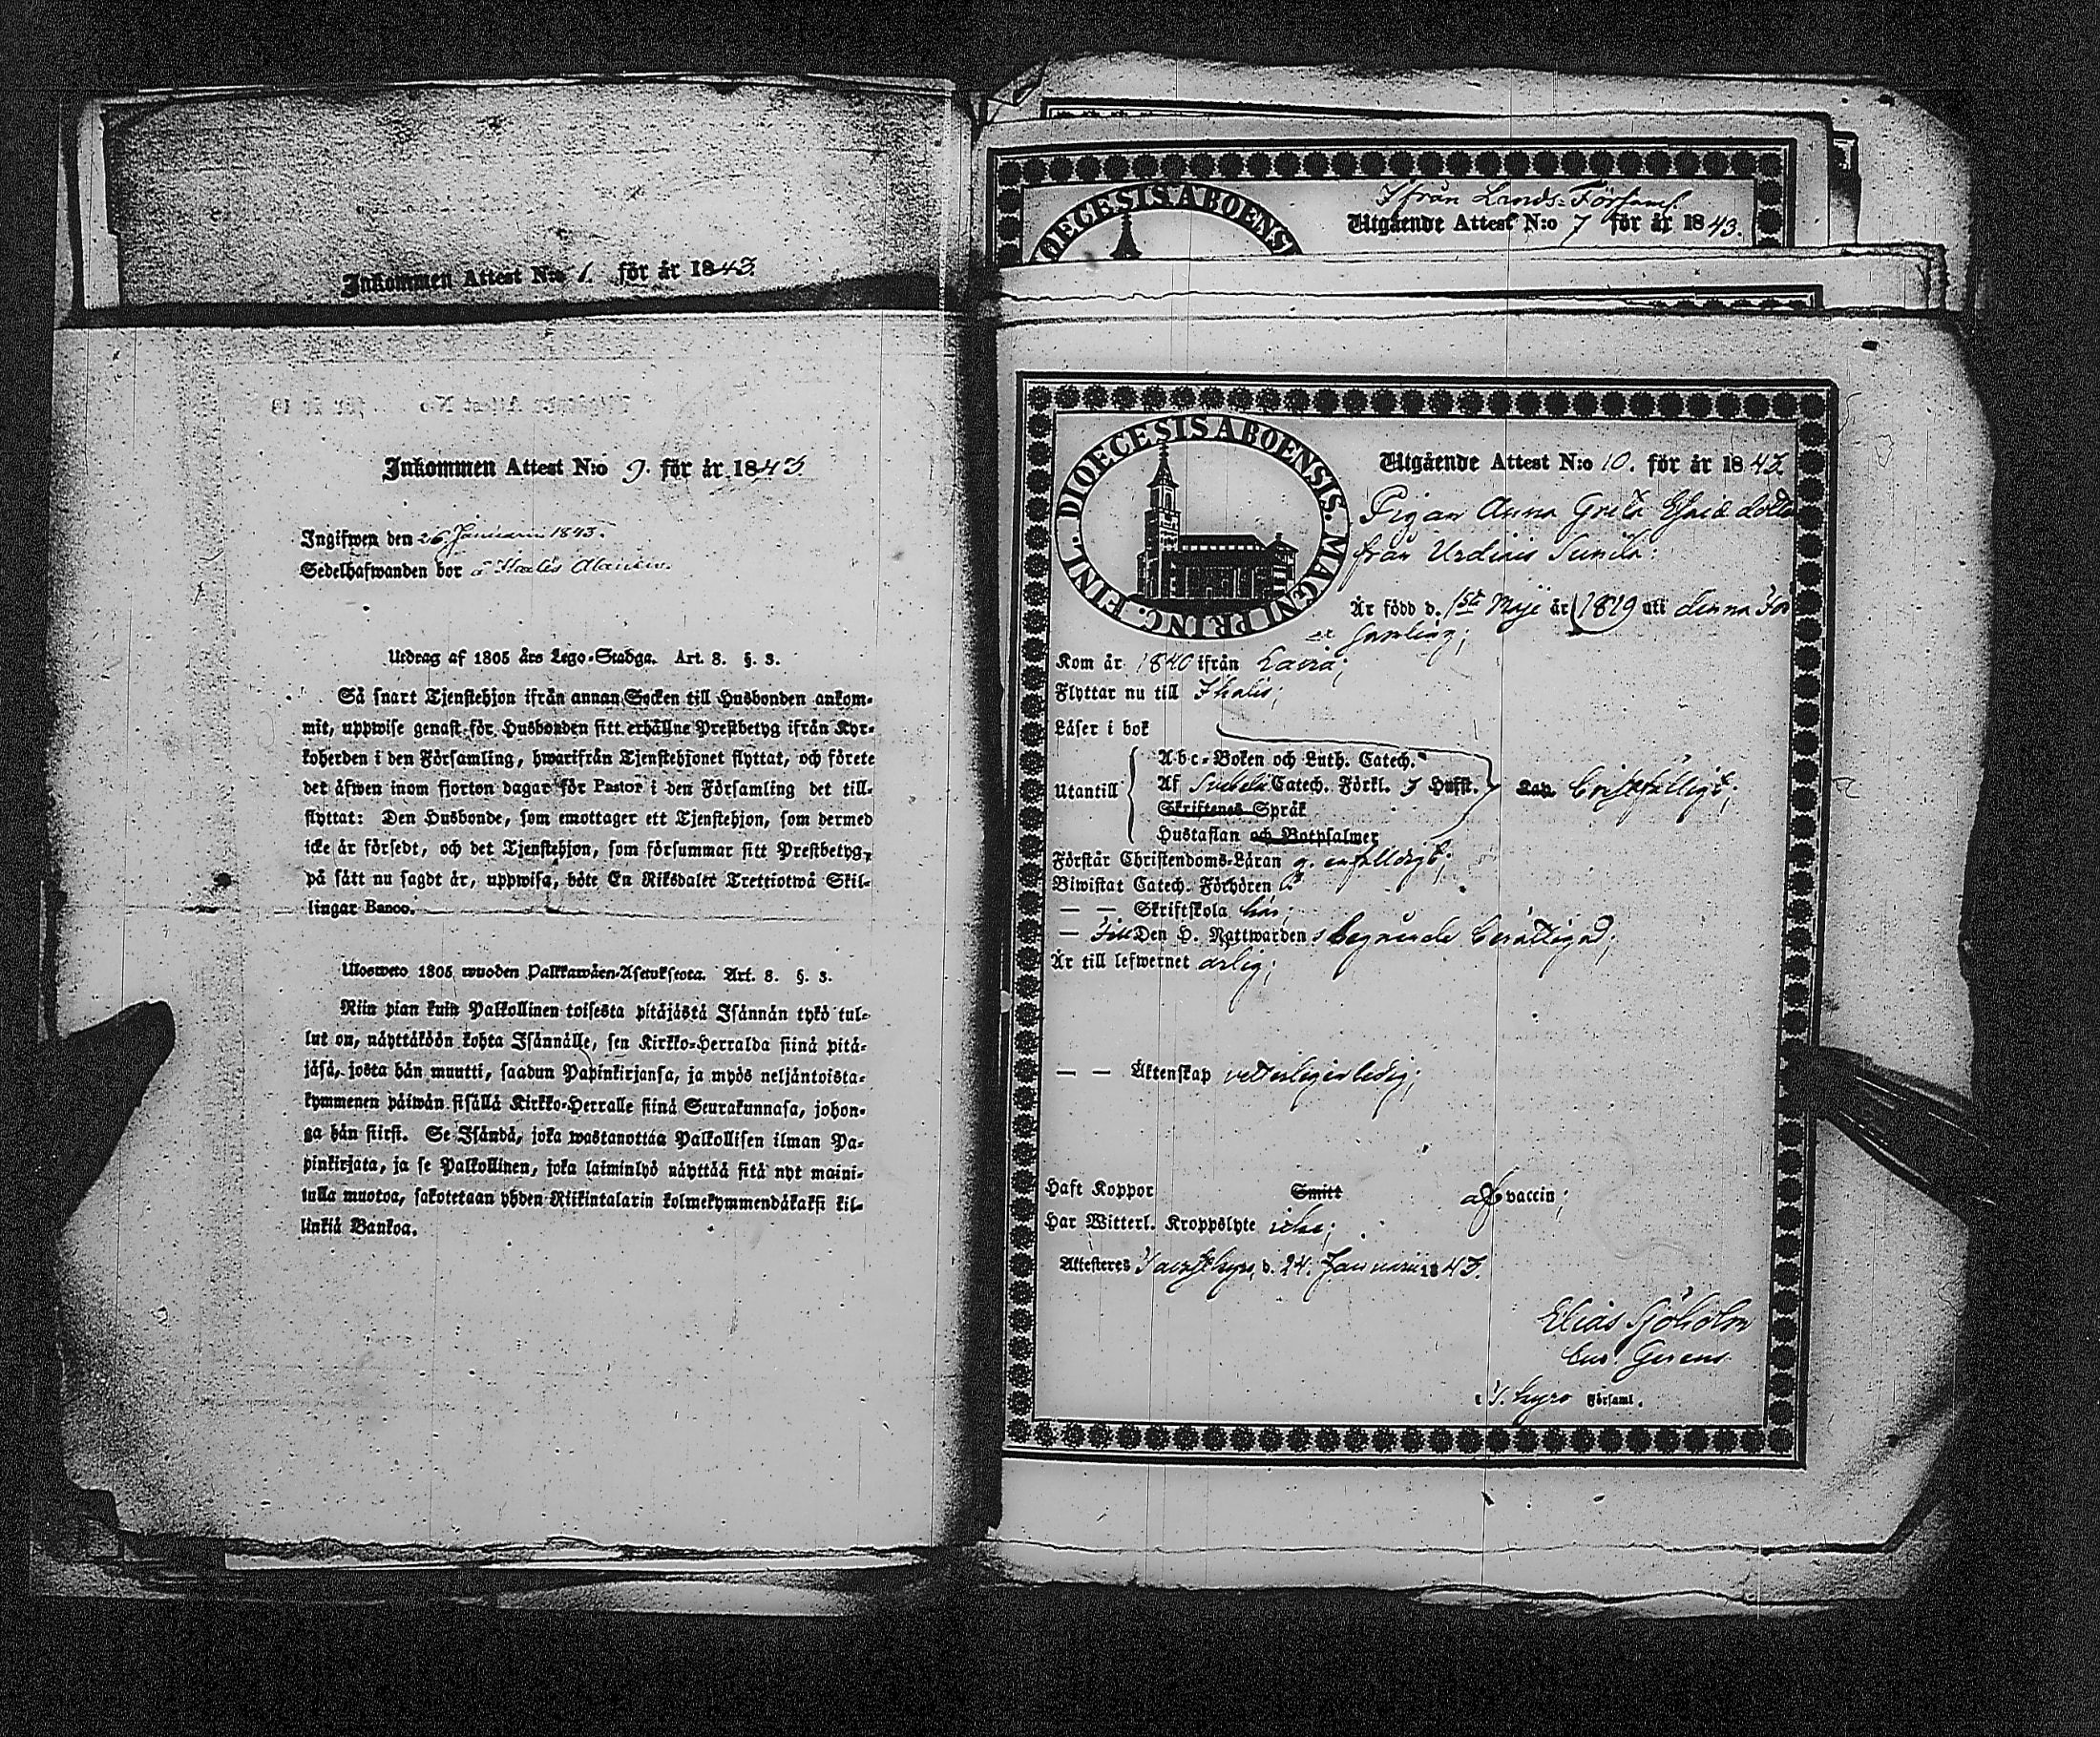 Inkommen Attest N:o 1. för år 1843.
Inkommen Attest N:o 9. för år 1843
Ingifwen den 26 Januarii 1843.
Sedelhafwanden bor å
Utdrag af 1805 års Lego-Stadga. Art. 8. §. 3.
Så snart Tjenstehjon ifrån annan Socken till Husbonden ankom-
mit, uppwise genast för Husbonden sitt erhållne Prestbetyg ifrån Kyr-
koherden i den Församling, hwarifrån Tjenstehjonet flyttat, och förete
det äfwen inom fjorton dagar för Pastor i den Församling det till-
flyttat: Den Husbonde, som emottager ett Tjenstehjon, som dermed
icke är försedt, och det Tjenstehjon, som försummar sitt Prestbetyg,
på sätt nu sagdt är, uppwisa, böte En Riksdaler Trettiotwå Skil-
lingar Banco.
Ulosweto 1805 wuoden Palkkawäen-Asetuksesta. Art. 8. §. 3.
Niin pian kuin Palkollinen toisesta pitäjästä Isännän tykö tul-
lut on, näyttäköön kohta Isännälle, sen Kirkko-Herralda siinä pitä-
jäsä, josta hän muutti, saadun Papinkirjansa, ja myös neljäntoista-
kymmenen päiwän sisällä Kirkko-Herralle siinä Seurakunnasa, johon-
ga hän siirsi. Se Isändä, joka wastanottaa Palkollisen ilman Pa-
pinkirjata, ja se Palkollinen, joka laiminlyö näyttää sitä nyt maini-
tulla muotoa, sakotetaan yhden Riikintalarin kolmekymmendäkaksi kil-
linkiä Bankoa.
DIOECESIS ABOENSI
Ifrån Lands-Församl.
Utgående Attest N:o 7 för år 1843.
DIOECESIS ABOENSIS. MAGNI PRINC. FINL.
Utgående Attest N:o 10. för år 1843
Pigan Anna Greta
från
Är född d. 1st Maji år 1819 uti denna För
samling;
Kom år 1840 ifrån Lavia;
Flyttar nu till Ikalis;
Läser i bok
Utantill
Abc-Boken och Luth. Catech.
Af Svebelii Catech. Förkl. 3 Hufst.
Skriftenes Språk
Hustaflan och Botpsalmer
bristfälligt;
Förstår Christendoms-Läran g. enfaldigt;
Biwistat Catech. Förhören
— — Skriftskola här;
— Till Den H. Nattwardens begående berättigad;
Är till lefwernet ärlig;
— — Äktenskap vetterligen ledig;
Haft Koppor Smitt af vaccin;
Har Witterl. Kroppslyte icke;
Attesteres Tavastkyro, d. 24. Januarii 1843.
Elias Sjöholm
Cur. Gerens
i T. kyro Församl.